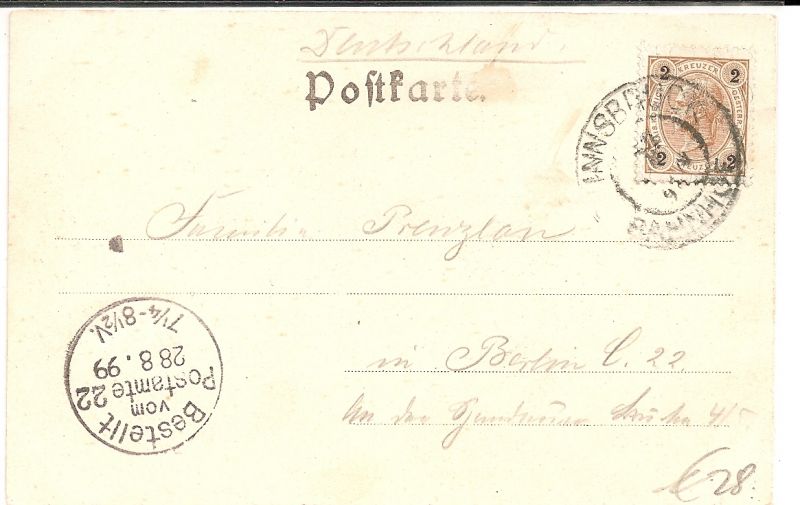 Deutschland.
Postkarte.
2 KREUZER 2
2 KREUZER 2
INNSBRUCK
BAHNHOF
9
Familie Prenzlau
in Berlin C. 22
An der Spandauer
28
Bestellt
vom
Postamte 22
28 8. 99
7¼-8½V.